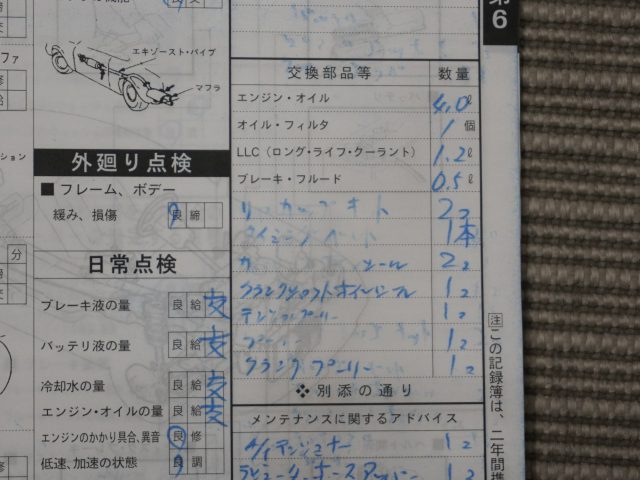 エキゾースト・パイプ
マフラ
外廻り点検
■ フレーム、ボデー
緩み、損傷 良 締
日常点検
ブレーキ液の量 良 給 交
バッテリ液の量 良 給 交
冷却水の量 良 給 交
エンジン・オイルの量 良 給 交
エンジンのかかり具合、異音 良 修
低速、加速の状態 良 調
交換部品等 数量
エンジン・オイル 4.0ℓ
オイル・フィルタ 1個
LLC（ロング・ライフ・クーラント） 1.2ℓ
ブレーキ・フルード 0.5ℓ
カップキット 2コ
タイミングベルト 1本
シール 2コ
クランクシャフトオイルシール 1コ
テンションプーリー 1コ
1コ
クランクプーリー 1コ
❖ 別添の通り
メンテナンスに関するアドバイス
テンショナー 1コ
ラジエーターホースアッパー 1コ
第6
注 この記録簿は、二年間携